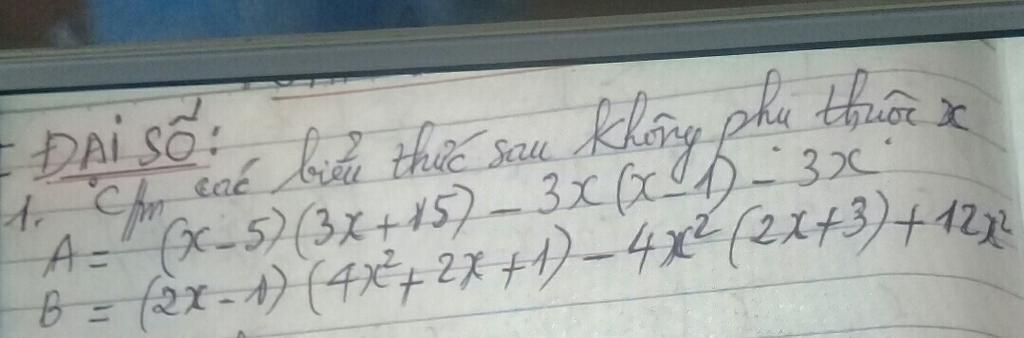 ĐẠI SỐ:
1. C/m các biểu thức sau không phụ thuộc x
A = (x - 5)(3x + 15) - 3x(x - 1) - 3x
B = (2x - 1)(4x² + 2x + 1) - 4x²(2x + 3) + 12x²